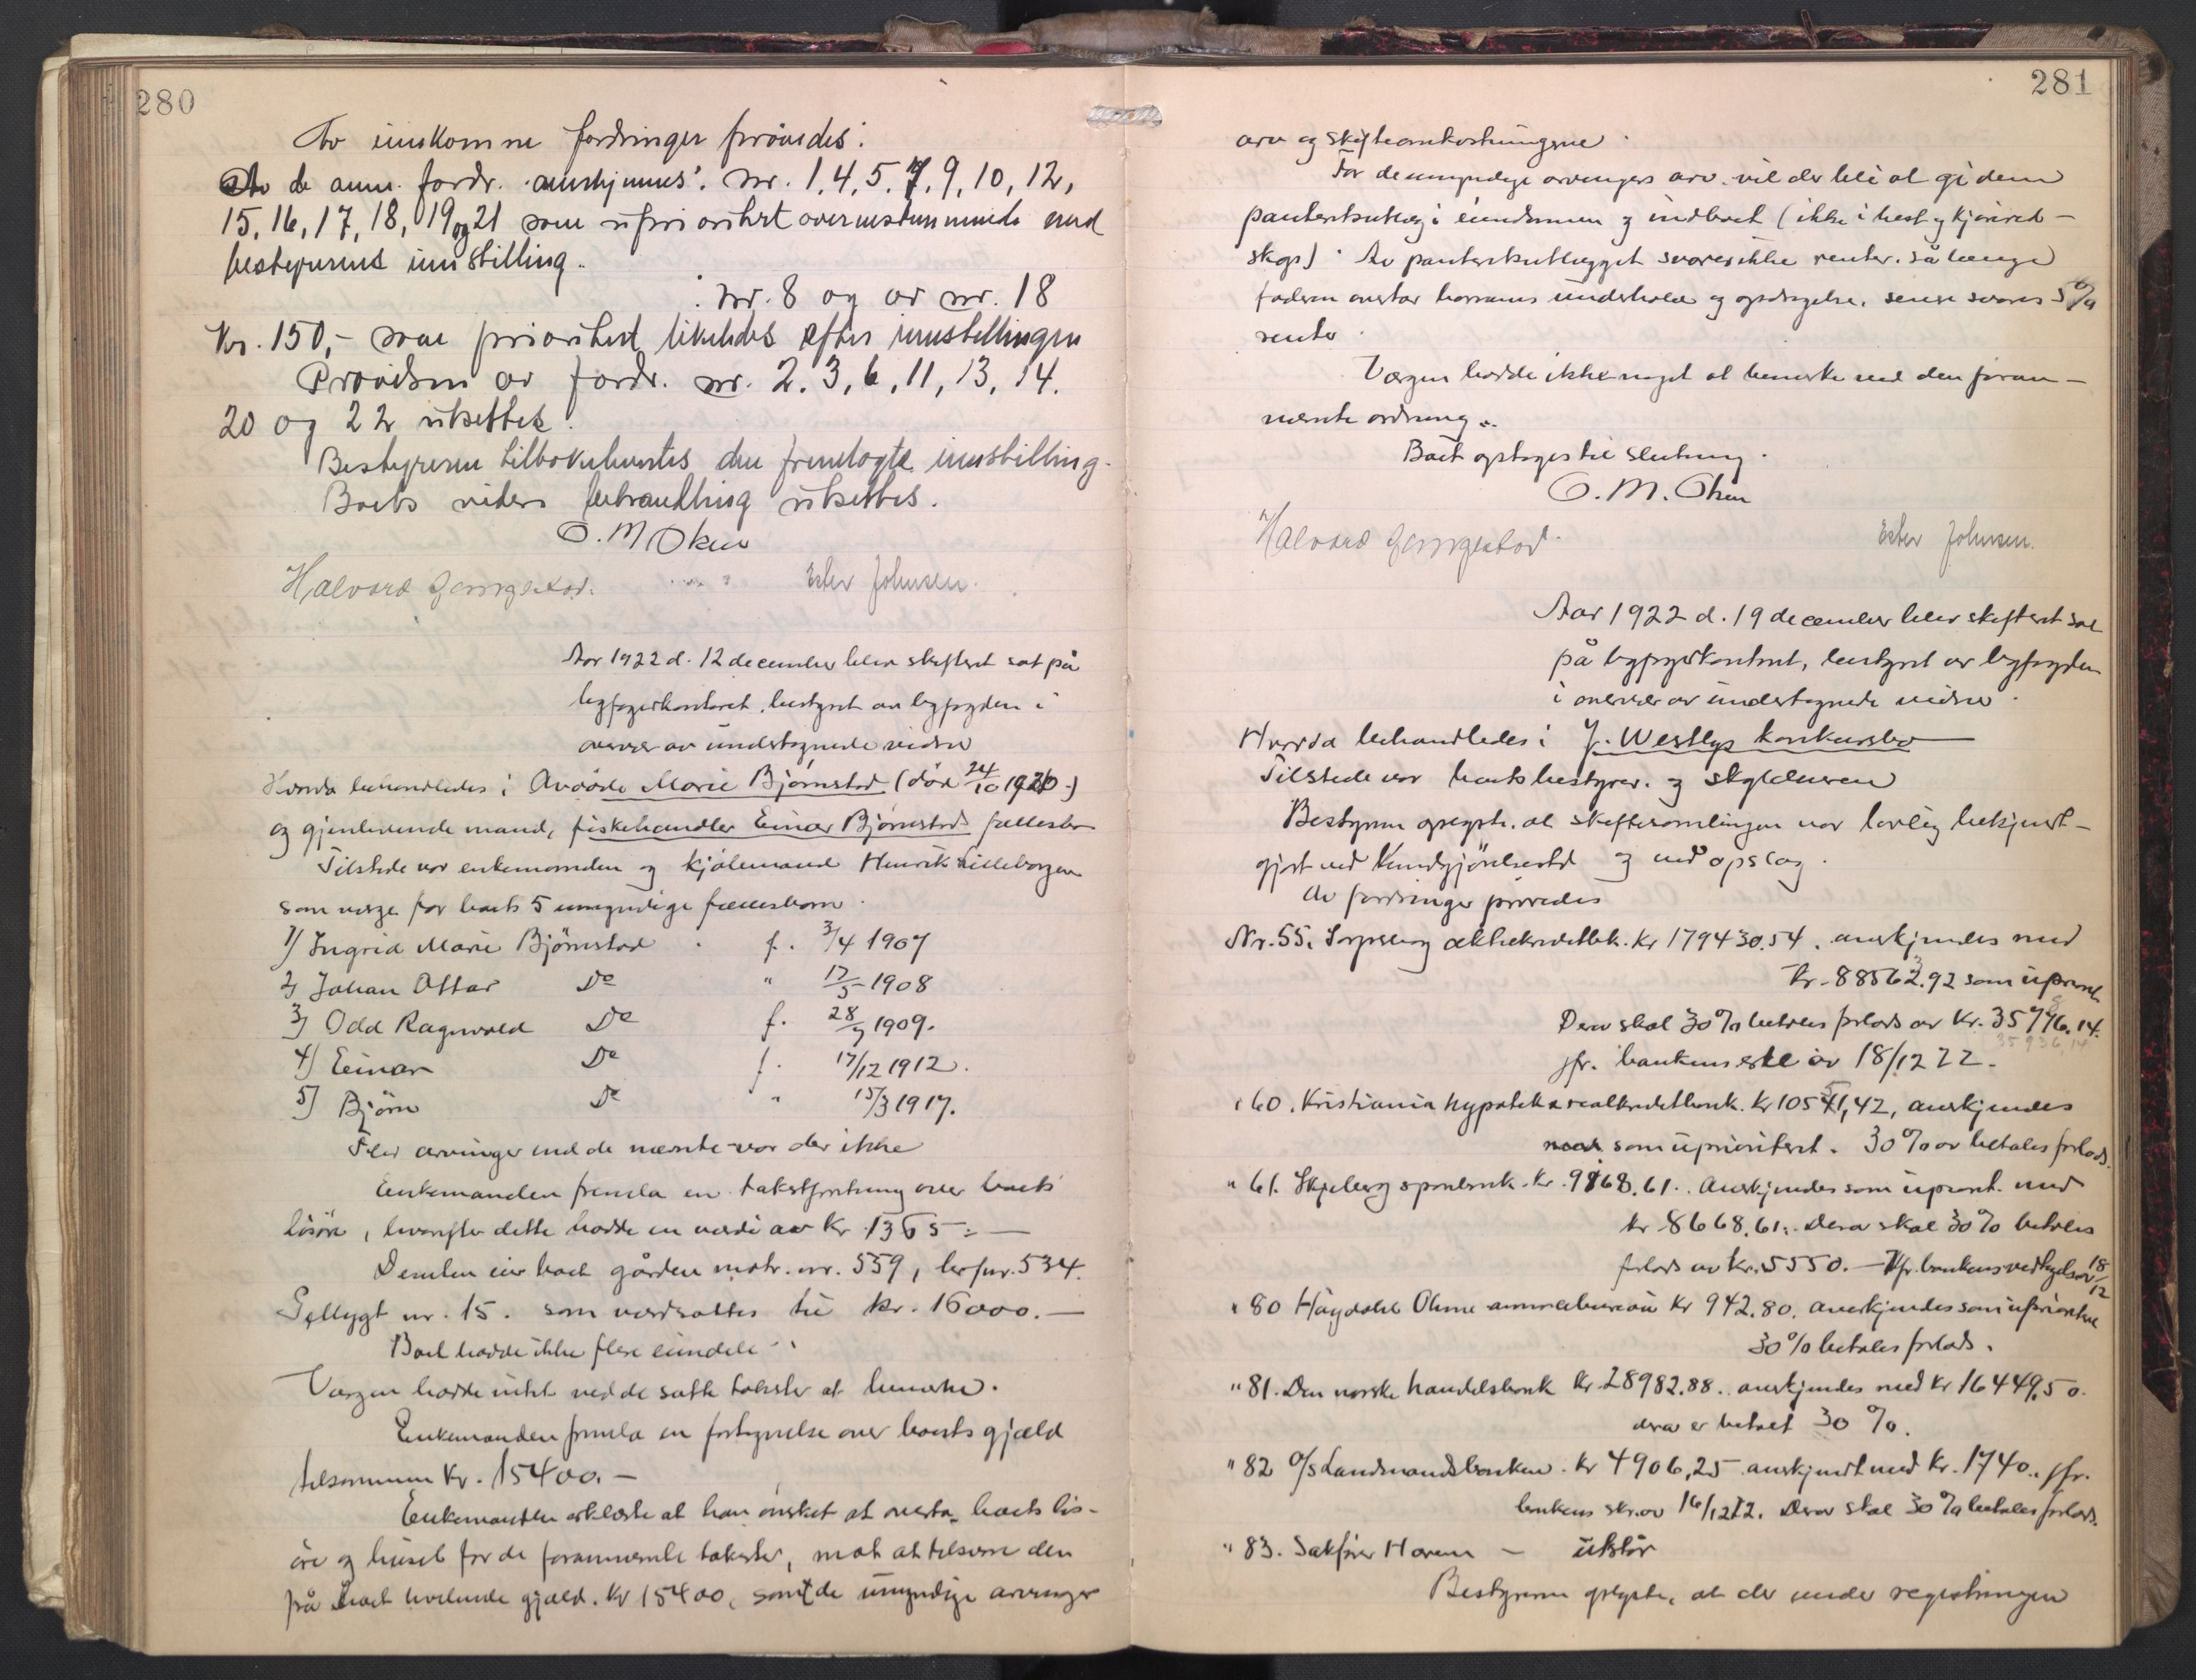 280
Av innkomne fordringer prövedes:
Av de anm. fordr. anerkjennes: Nr. 1, 4, 5, 7, 9, 10, 12,
15, 16, 17, 18, 19 og 21 som uprioritert overensstemmende med
bestyrerens innstilling.
Nr. 8 og av nr. 18
Kr. 150,- som prioritert likeledes efter innstillingen
Prövelsen av fordr. nr. 2, 3, 6, 11, 13, 14.
20 og 22 utsettes.
Bestyreren tilbakeleveredes den fremlagte innstilling.
Boets videre behandling utsettes.
O. M. Olsen
Halvard Ester Johnsen.
Aar 1922 d. 12 december blev skifteret sat på
byfogedkontoret, bestyret av byfogden i
overvær av undertegnede vidner
Hvorda behandledes i Marie Björnstad (död 24/10 1920)
og gjenlevende mand, fiskehandler Einar Björnstads fællesbo
Tilstede var enkemanden og kjölemand Henrik Lilleborgen
som verge for boets 5 umyndige fællesbarn.
1) Ingrid Marie Björnstad f. 3/4 1907
2) Johan Ottar Do " 17/5 1908
3) Odd Ragnvald Do f. 28/7 1909.
4) Einar Do f. 17/12 1912.
5) Björn Do " 15/3 1917.
Flere arvinger end de nævnte var der ikke
Enkemanden fremla en takstforretning over boets
lösöre, hvorefter dette hadde en værdi av Kr. 1365:-
Desuten eier boet gården matr. nr. 559, br.fnr. 534.
Gellygt nr. 15. som værdsattes til kr. 16000.-
Boet hadde ikke flere eiendele.
Vergen hadde intet ved de satte takster at bemerke.
Enkemanden fremla en fortegnelse over boets gjæld
tilsammen Kr. 15400.-
Enkemanden erklærte at han önsket at overta boets lös-
öre og huset for de forannævnte takster, mot at tilsvare den
på boet hvilende gjæld. Kr 15400, samt de umyndige arvinger
281
arv og skifteomkostningene.
For de umyndige arvingers arv vil der bli at gi dem
panteretsutlæg i eiendommen og indboet (ikke i hest og kjörered-
skap). Av panteretsutlægget svares ikke renter, så længe
faderen overtar barnenes underhold og opdragelse, senere svares 5%
rente.
Vergen hadde ikke noget at bemerke ved den foran-
nævnte ordning.
Boet optages til slutning.
O. M. Olsen
Halvard Ester Johnsen.
Aar 1922 d. 19 december blev skifteret sat
på byfogedkontoret, bestyret av byfogden
i overvær av undertegnede vidner.
Hvorda behandledes i J. Westlys konkursbo
Tilstede var boets bestyrer og skyldneren
Bestyreren oplyste, at skiftesamlingen var lovlig bekjendt-
gjort ved Kundgjörelsestid. og ved opslag.
Av fordringer prövedes
Nr. 55. Sarpsborg aktiekreditbk. Kr 179430.54. anerkjendes med
Kr. 88562.92 som uprioritet
Derav skal 30% betales forlods av Kr. 35776.14.
35936.14
jfr. bankens erkl. av 18/12 22.
" 60. Kristiania hypotek & realkreditbank. Kr 10551,42, anerkjendes
som uprioritert. 30% av betales forlods.
" 61. Skjeberg sparebank. Kr. 9868.61. Anerkjendes som upriorit. med
kr. 8668,61. Derav skal 30% betales
forlods av Kr. 5550.- Jfr. bankens vedtagelse av 18/12
" 80 Höydahl Ohme annoncebureau Kr 942.80. anerkjendes som uprioritert
30% betales forlods.
" 81. Den norske handelsbank Kr. 28982.88. anerkjendes med Kr 16449.50.
derav er betalt 30%.
" 82 A/S Landmandsbanken. Kr 4906,25 anerkjendt med Kr. 1740., jfr.
bankens skr. av 16/12 22. Derav skal 30% betales forlods.
" 83. Sakförer Haren - utstår
Bestyreren oplyste, at der under registreringen